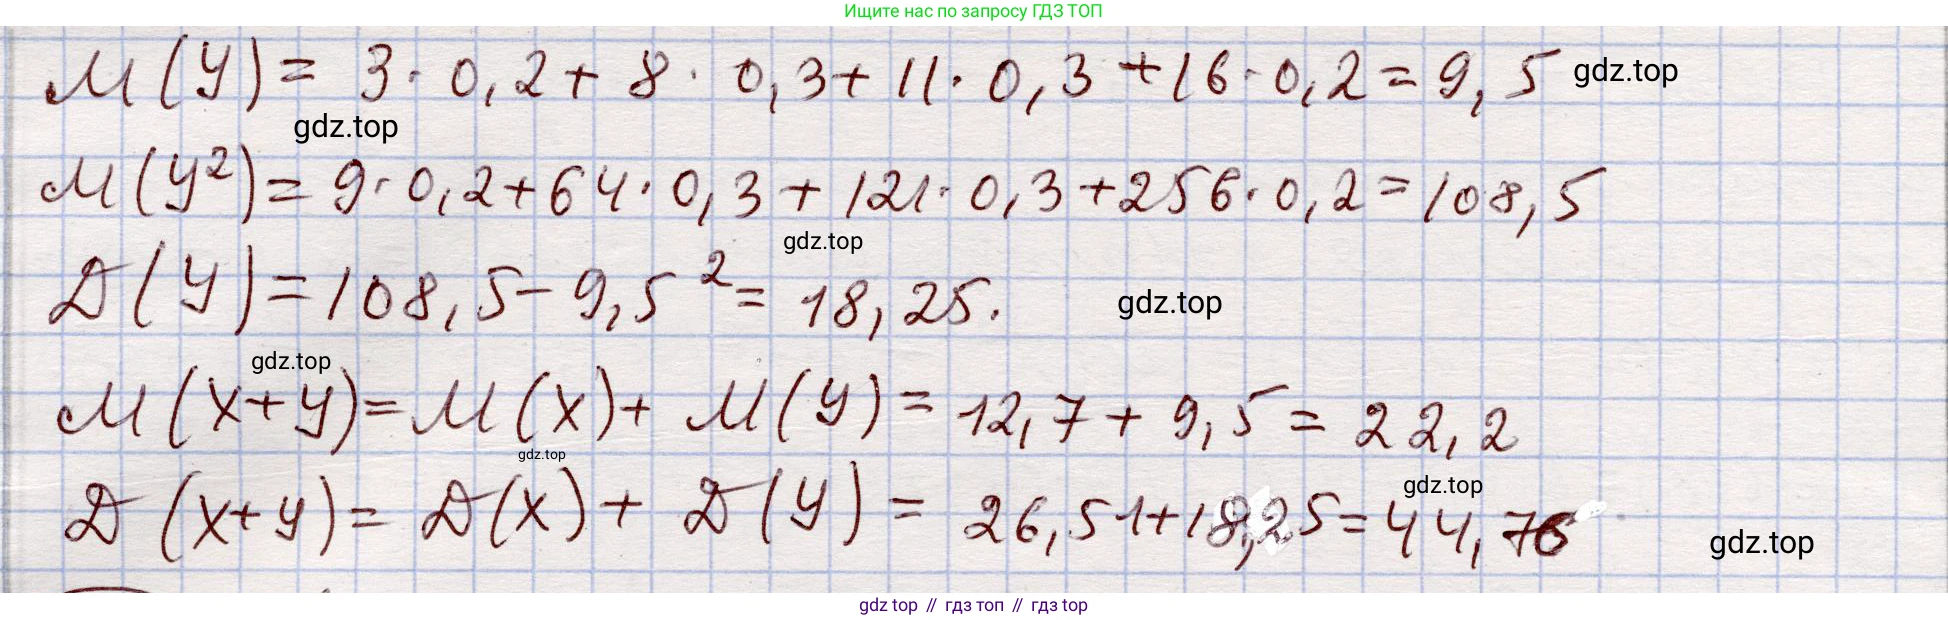 Ищите нас по запросу ГДЗ ТОП
M(y) = 3 · 0,2 + 8 · 0,3 + 11 · 0,3 + 16 · 0,2 = 9,5 gdz.top
gdz.top
M(y²) = 9 · 0,2 + 64 · 0,3 + 121 · 0,3 + 256 · 0,2 = 108,5
gdz.top
D(y) = 108,5 - 9,5² = 18,25.
gdz.top
gdz.top
M(x+y) = M(x) + M(y) = 12,7 + 9,5 = 22,2
gdz.top
gdz.top
D(x+y) = D(x) + D(y) = 26,51 + 18,25 = 44,76
gdz.top
gdz top // гдз топ // гдз top